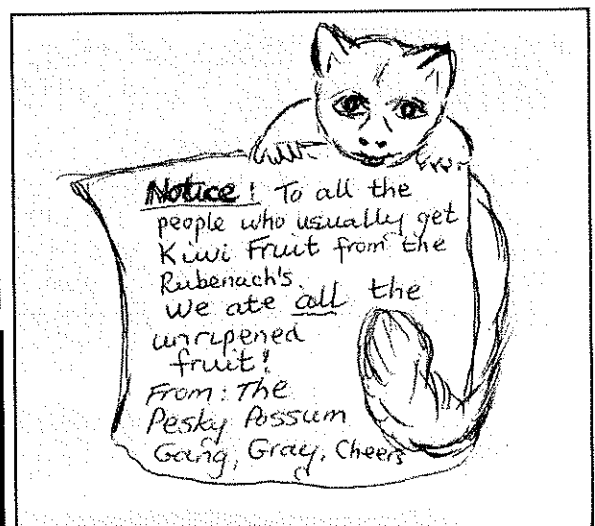 Notice! To all the
people who usually get
Kiwi Fruit from the
Rubenach's.
We ate all the
unripened
fruit!
From: The
Pesky Possum
Gang, Gray, Cheers